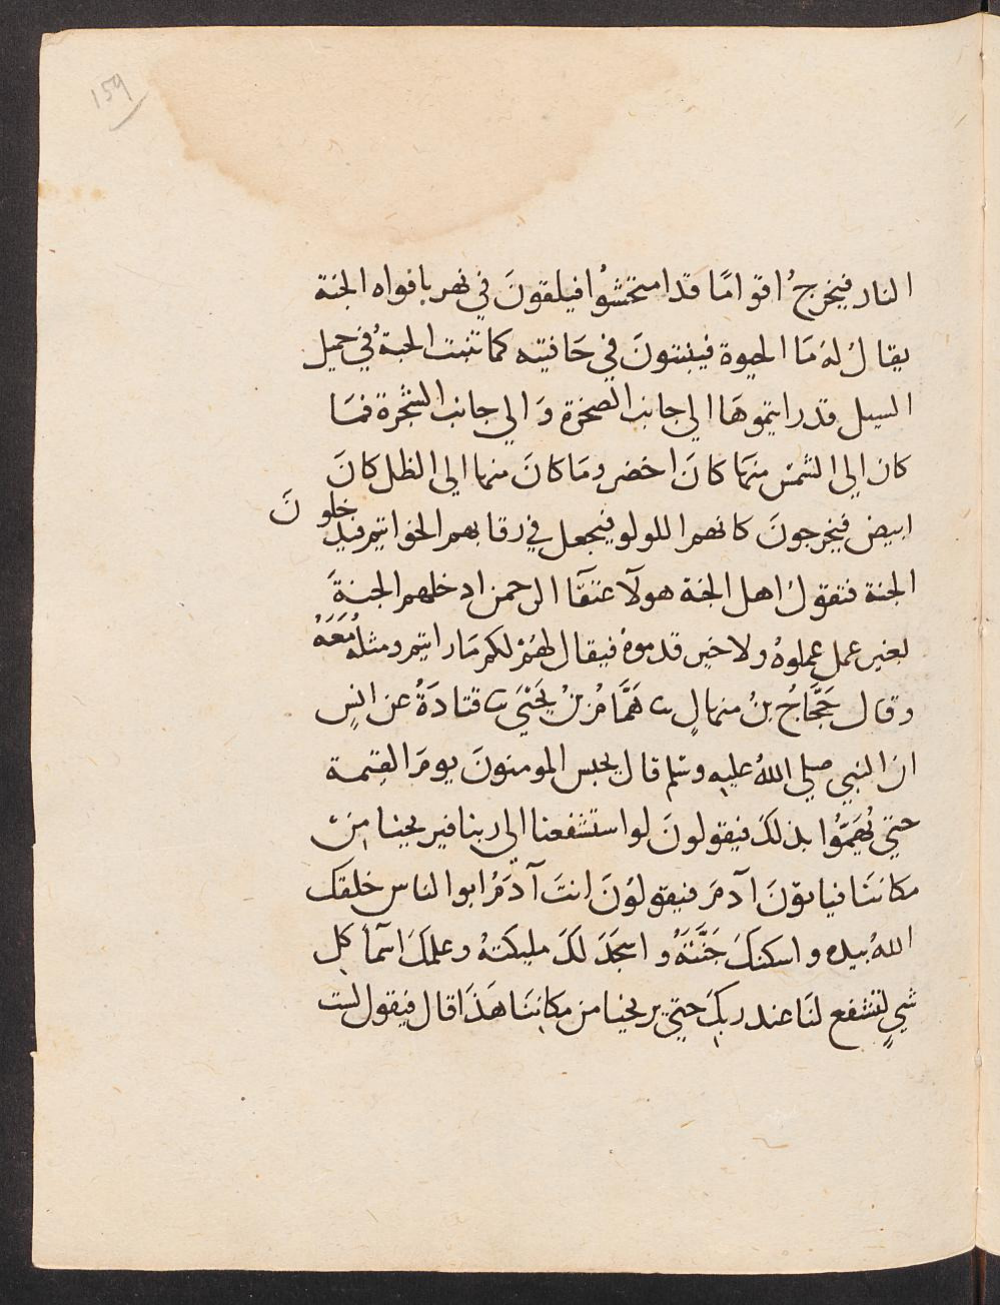 159
النار فيخرجُ اقوامًا قد امتحشُوا فيلقونَ في نهر بافواه الجنة
يقالُ لهُ مَا الحيوة فينبتونَ في حَافيته كما تنبت الحبةُ في حميل
السيل قد رايتموهَا الي جانب الصخرة وَ الي جانب الشجرة فمَا
كان الي الشمْس منهَا كانَ اخضر ومَا كانَ منها الي الظل كانَ
ابيض فيخرجونَ كانهم اللولو فيجعل في رقابهم الخواتيم فيدخلونَ
الجنة فتقولُ اهل الجنة هولآ عتقآ الرحمن ادخلهم الجنةَ
بغير عمل عملوهُ ولا خير قدموهُ فيقال لهُمْ لكم مَا رايتم ومثلهُ مَعَهُ
وقال حَجَّاجُ بنُ منهالٍ ثنا هَمَّامُ بْنُ يَحْيَي ثنا قتادَةُ عن انسٍ
ان النبي صلي اللهُ عليهِ وسلم قال يحبس المومنونَ يومَ القيمة
حتي يُهَمُّوا بذلكَ فيقولونَ لو استشفعنا الي ربنا فيريحنا مِنْ
مكاننَا فياتوْنَ آدمَ فيقولوُنَ انتَ آدَمُ ابوا الناس خلقك
اللهُ بيده و اسكنكَ جَنَّتَهُ و اسجَدَ لكَ مليكتهُ وعلمكَ اسمآ كلِ
شيٍ لتشفع لنَا عند ربكَ حتي يريحنا من مكاننَا هَذَا قال فيقول لست